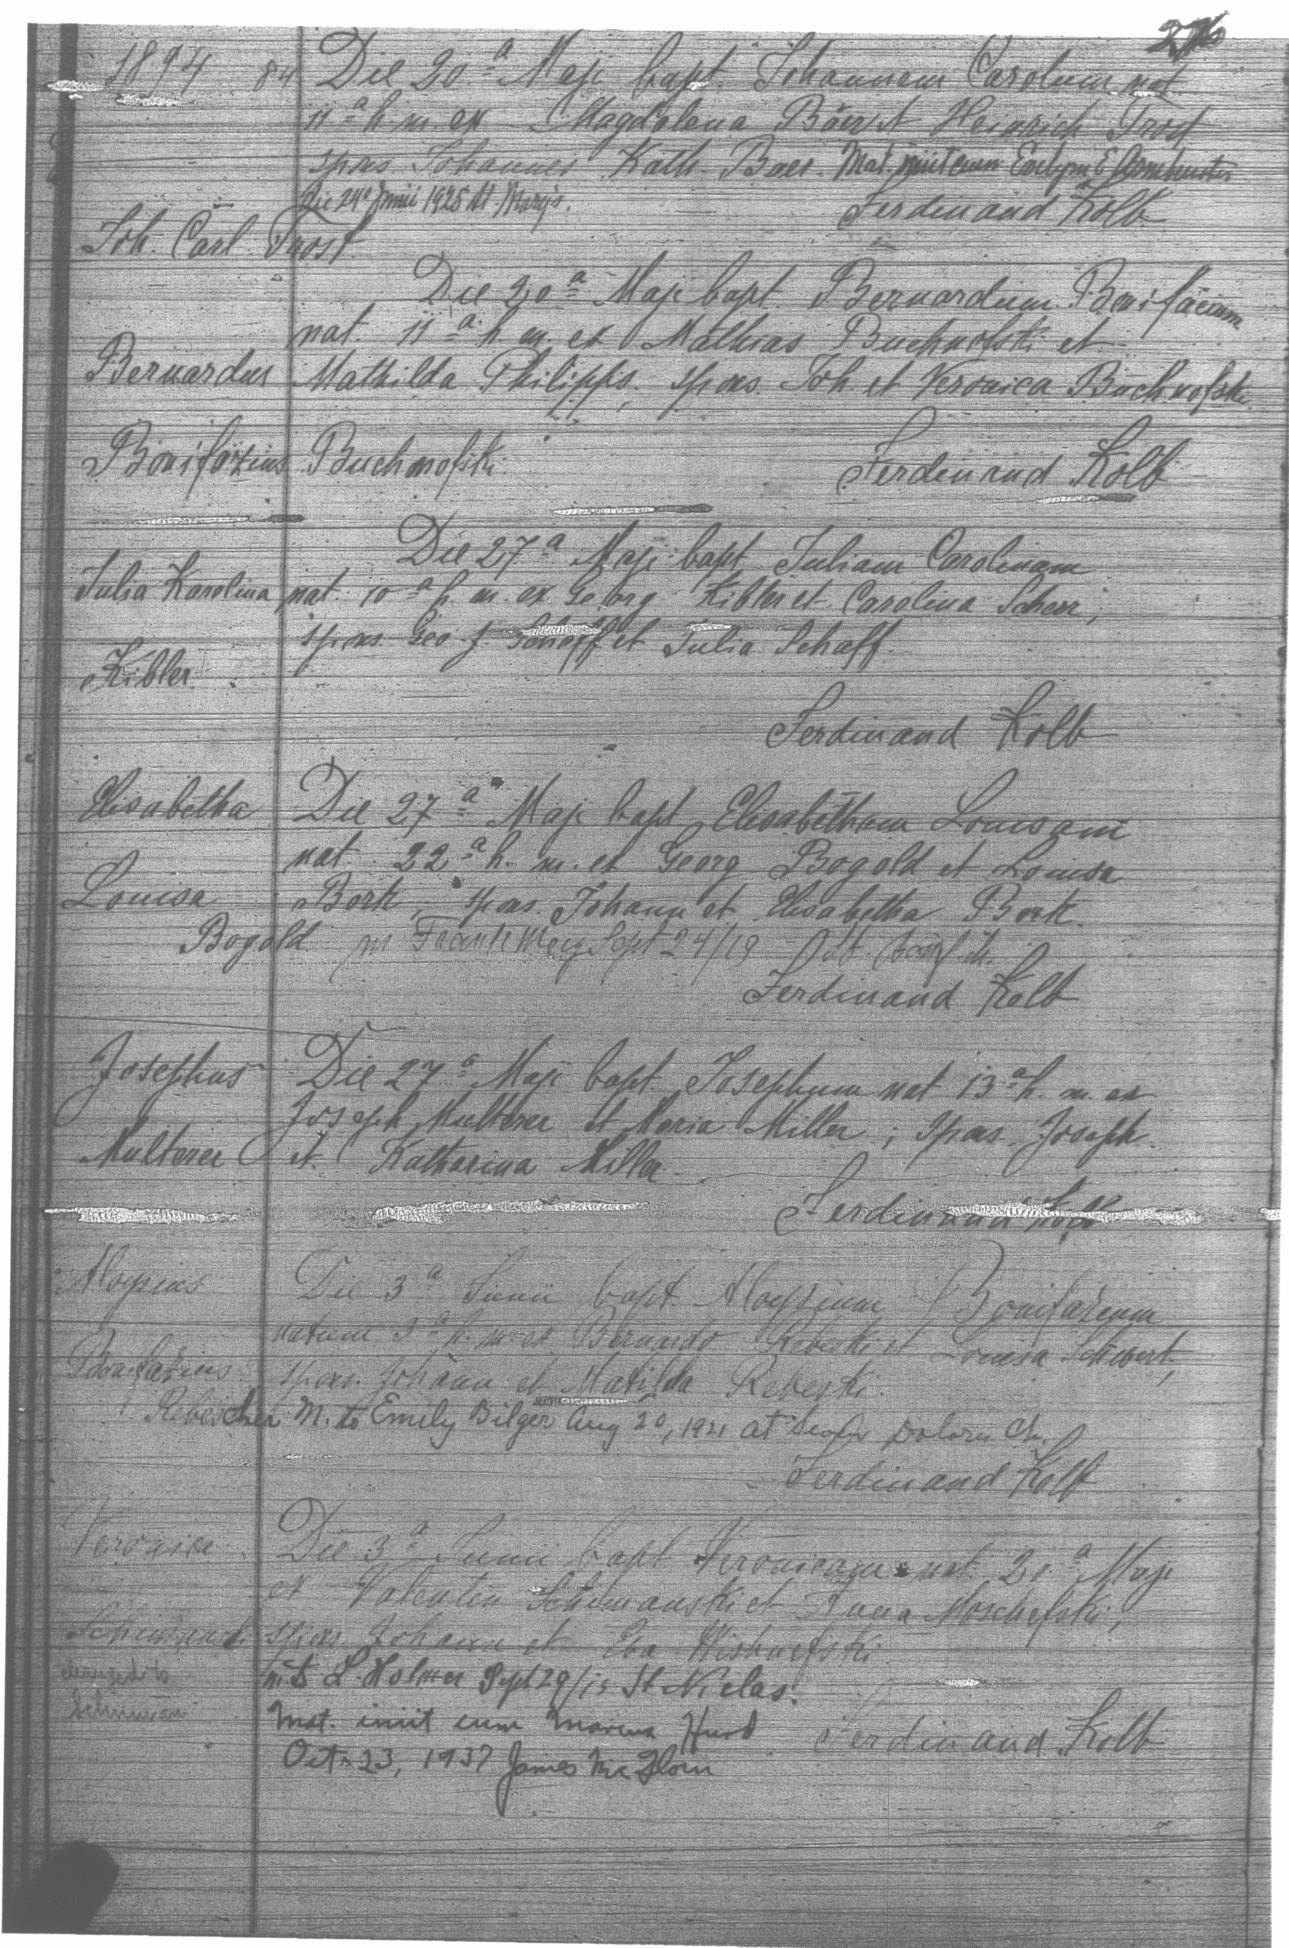 276
1894 84 Die 20ª Maji bapt. Johannem Carolum nat.
11ª h. m. ex Magdalena Bäer et Heinrich Trost
spons Johannes Kath. Baer. Mat. iniit cum Evelyn E.
Die 24ª Junii 1925 St. Mary's. Ferdinand Kolb
Joh. Carl Trost
Die 20ª Maji bapt Bernardum Bonifacium
nat. 11ª h. m. ex Mathias Buchnofski et
Bernardus Mathilda Philipps, spons. Joh et Veronica Buchnofski.
Bonifazius Buchnofski Ferdinand Kolb
Die 27ª Maji bapt Juliam Carolinam
Julia Karolina nat. 10ª h. m. ex Georg Kibler et Carolina Scherr,
spons. Geo J. Schaff et Julia Schaff.
Kibler
Ferdinand Kolb
Elisabetha Die 27ª Maji bapt Elisabetham Louisam
nat 22ª h. m. ex Georg Bogold et Louisa
Louisa Bork, spons. Johann et Elisabetha Bork.
Bogold m Frank Sept 24/18
Ferdinand Kolb
Josephus Die 27ª Maji bapt Josephum nat 13ª h. m. ex
Joseph Multerer et Maria Miller; spons. Joseph
Multerer et Katharina Miller.
Ferdinand Kolb
Aloysius Die 3ª Junii bapt Aloysium Bonifazium
natum 3ª h. m. ex Bernardo Rebeski et Louisa Siewert,
Bonifazius spons. Johann et Matilda Rebeski.
Rebescher M. to Emily Bilger Aug 20, 1921 at Dolors Ch.
Ferdinand Kolb
Veronica Die 3ª Junii bapt Veronicam nat. 20ª Maji
ex Valentin Schimanski et Anna Moschefski,
Schimanski spons Johann et Eva Wishnefski
changed to m to L. Holmer Sept 29/15 St Niclas.
Schimian Mat. iniit cum Marina Hurd Ferdinand Kolb
Oct 23, 1937 James McGloin